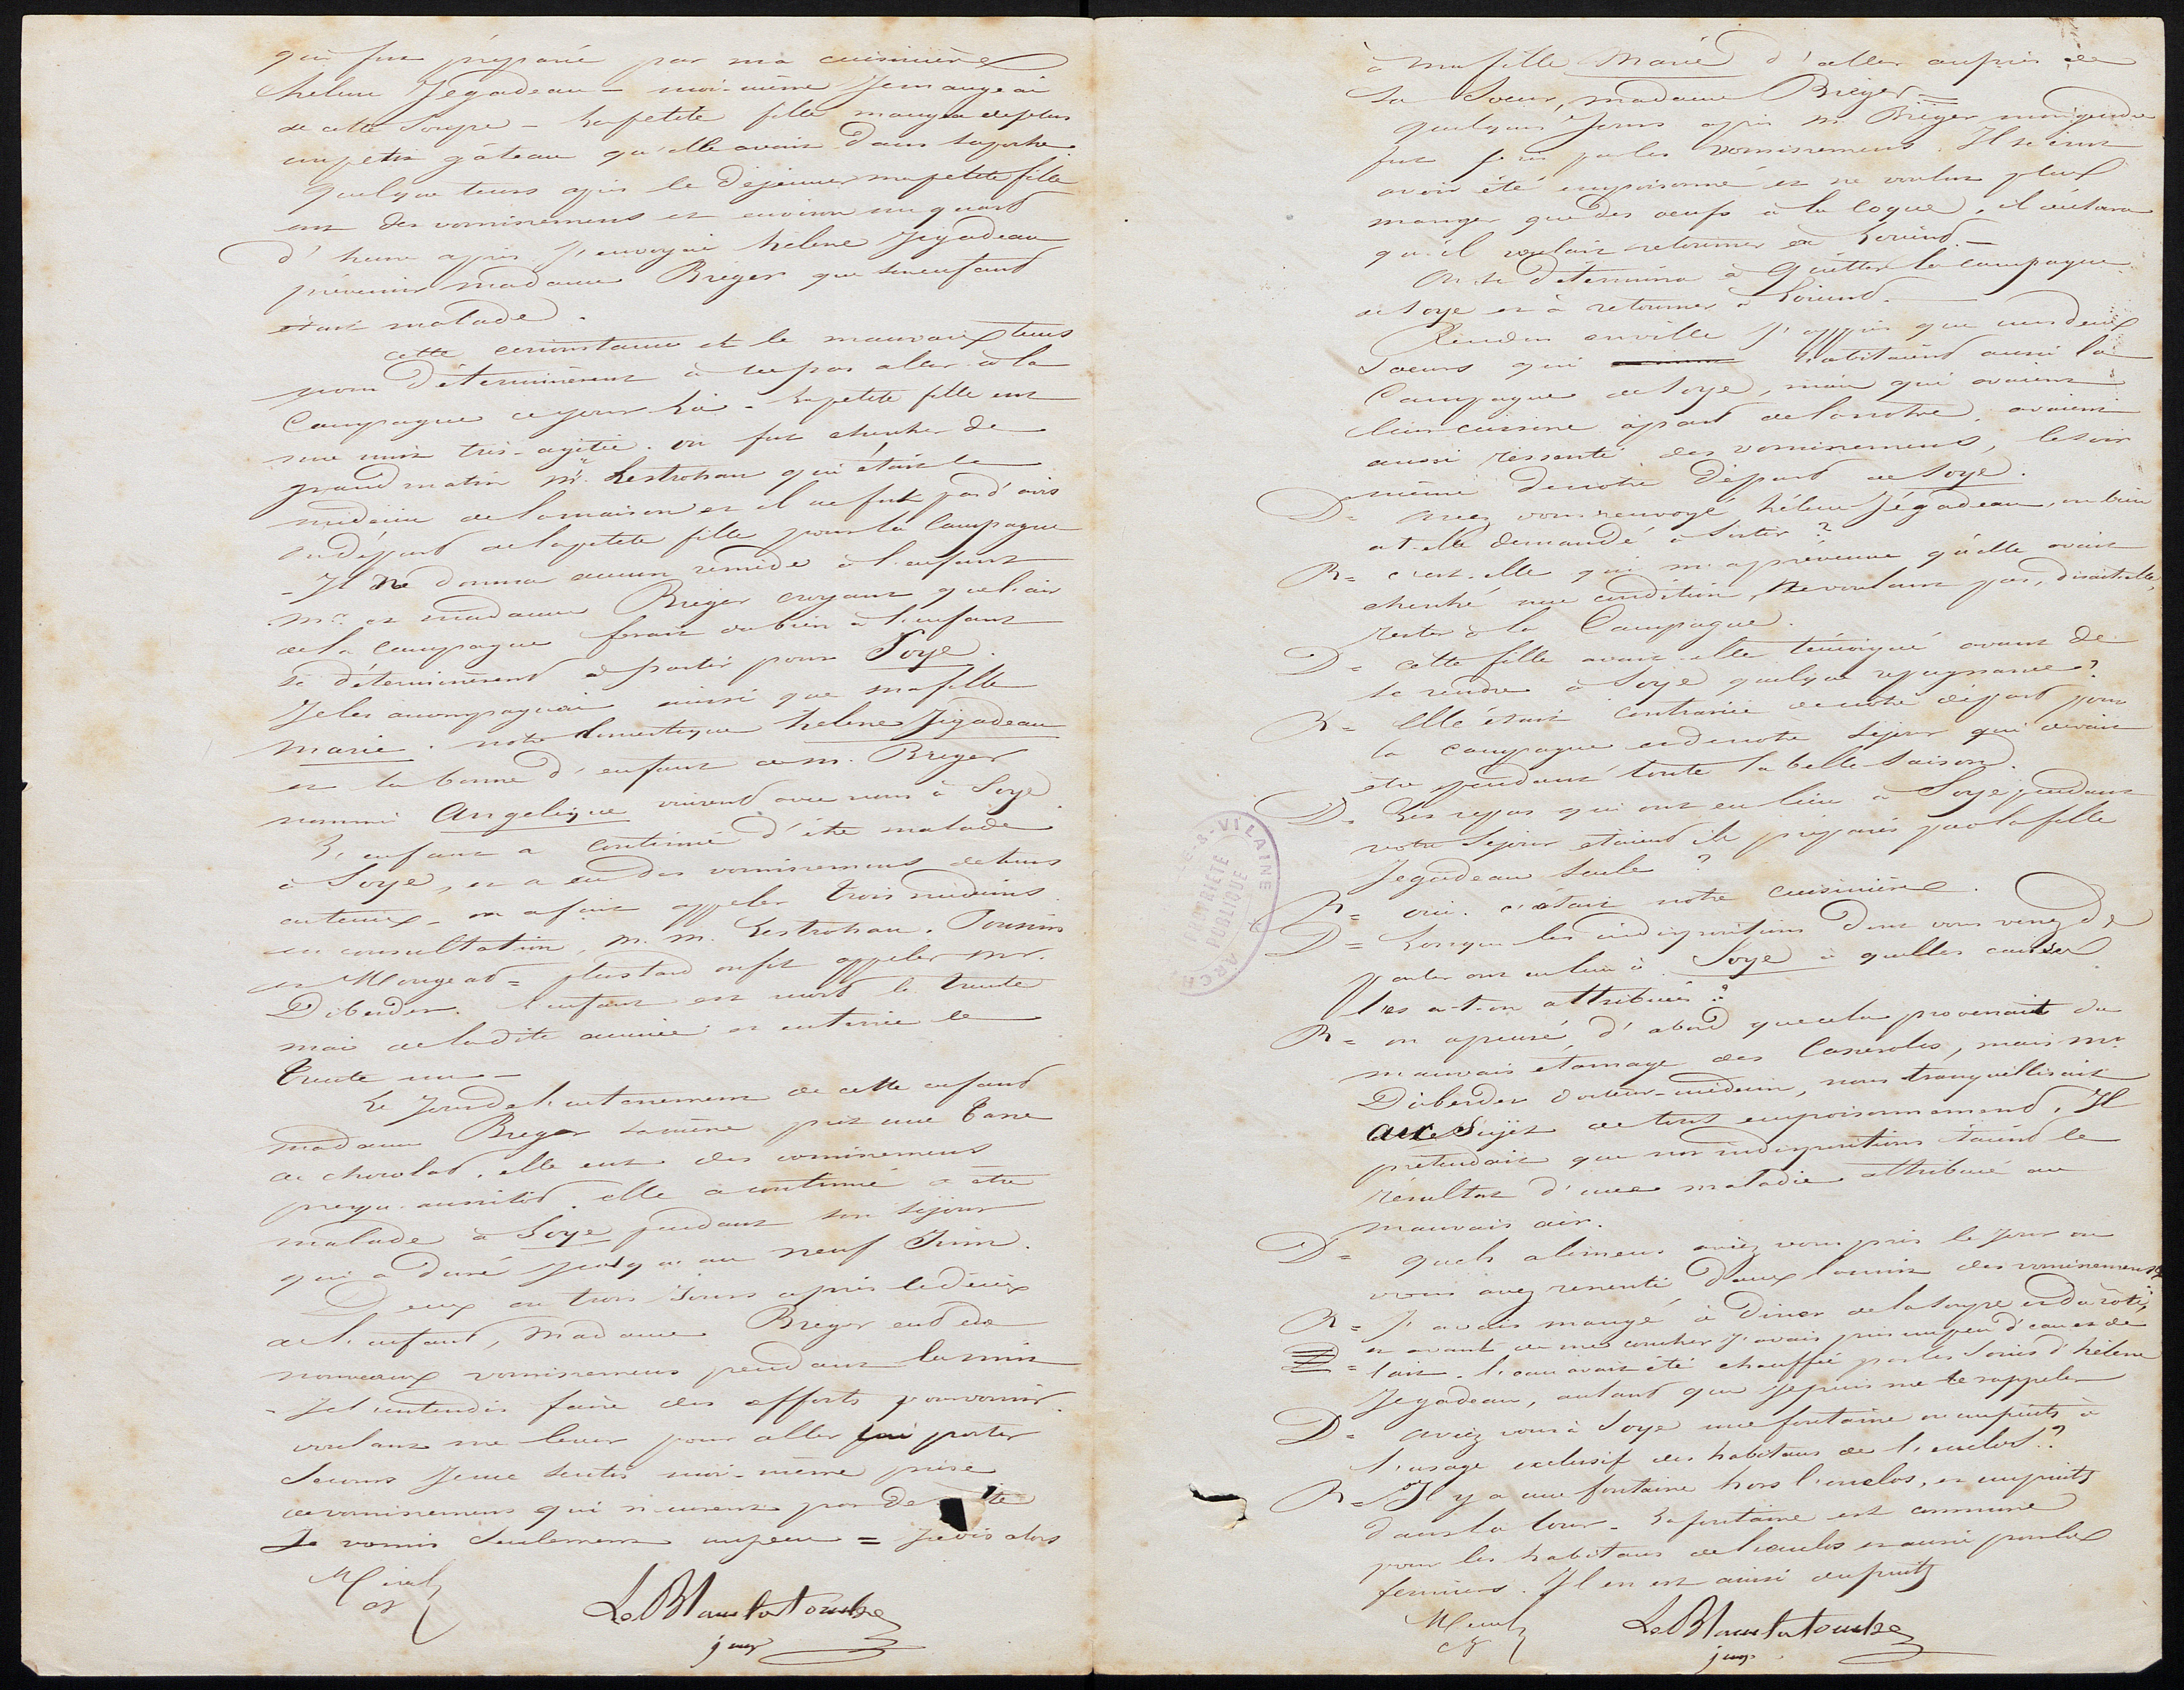 qui fut préparée par ma cuisinière
hélène Jegadeau – moi-même Je mangeai
de cette Soupe – La petite fille mangea de plus
un petit gâteau qu'elle avait dans sa poche.
Quelque tems après le déjeuner ma petite fille
eut des vomissemens et environ un quart
d'heure après J'envoyai hélene Jégadeau
prévenir madame Breger que son enfant
était malade.
cette circonstance et le mauvais tems
nous déterminèrent à ne pas aller à la
Campagne ce jour là – La petite fille eut
une nuit très-agitée. on fut chercher de
grand matin Mr. Lestrohan qui était le
médecin de la maison et il ne fut pas d'avis
du départ de la petite fille pour la Campagne
– Il ne donna aucun remède à l'enfant
Mr. et madame Breger croyant que l'air
de la Campagne ferait du bien à l'enfant
se déterminèrent à partir pour Soye.
Je les accompagnai ainsi que ma fille
Marie. notre domestique hélene Jigadeau
et la bonne d'enfant de M. Breger
nommée Angelique vinrent avec nous à Soye
L'enfant a continué d'être malade
à Soye, et a eu des vomissemens de tems
en tems – on a fait appeler trois médecins
en consultation, M. M. Lestrohan.
et Mongeat = plus tard on fit appeler Mr.
Diberder. l'enfant est mort le trente
mai de ladite année et enterrée le
trente un –
Le Jour de l'enterrement de cette enfant
madame Breger la mère prit une tasse
de chocolat, elle eut des vomissemens
presqu'aussitôt. elle a continué à être
malade à Soye pendant son séjour
qui a duré jusqu'au neuf Juin.
Deux ou trois Jours après le décès
de l'enfant, Madame Breger eut de
nouveaux vomissemens pendant la nuit
– Je l'entendis faire des efforts pour vomir.
voulant me lever pour aller lui porter
secours Je me sentis moi-même prise
de vomissemens qui n'eurent pas de
Je vomis seulement un peu = Je vis alors
Le Blanc
juge
à ma fille Marie d'aller auprès de
sa Soeur, madame Breger =
Quelques Jours après Mr. Breger mon gendre
fut pris par les vomissemens. Il se crut
avoir été empoisonné et ne voulut plus
manger que des oeufs à la Coque, il déclara
qu'il voulait retourner à Lorient. –
On se détermina à quitter la campagne
de Soye et à retourner à Lorient. –
Rendus en ville J'appris que mes deux
Soeurs qui habitaient aussi la
Campagne de Soye, mais qui avaient
leur cuisine à part de la notre, avaient
aussi ressenti des vomissemens, le soir
même de notre départ de Soye.
D = avez vous renvoyé hélène Jégadeau, ou bien
a t-elle demandé à sortir ?
R = c'est elle qui m'a prévenue qu'elle avait
cherché une condition, ne voulant pas, disait-elle,
rester à la Campagne.
D = cette fille avait elle témoigné avant de
se rendre à Soye quelque répugnance ?
R = Elle était contrariée de notre départ pour
la campagne et de notre séjour qui devait
etre pendant toute la belle saison.
D = Les repas qui ont eu lieu à Soye pendant
votre Séjour étaient ils préparés par la fille
Jegadeau Seule ?
R = oui. c'était notre cuisinière.
D = Lorsque les indispositions dont vous venez de
parler ont eu lieu à Soye à quelles causes
les a-t-on attribuées ?
R = on a pensé d'abord que cela provenait du
mauvais étamage des Casseroles, mais Mr.
Diberder docteur-médecin, nous tranquillisait
au Sujet de tout empoisonnement. Il
prétendait que nos indispositions étaient le
résultat d'une maladie attribuée au
mauvais air.
D = quels alimens aviez vous pris le jour où
vous avez ressenti dans la nuit des vomissemens
R = J'avais mangé à Diner de la soupe et du rôti,
et avant de me coucher J'avais pris un peu d'eau et de
lait. l'eau avait été chauffée par les soins d'hélène
Jegadeau, autant que je puis me le rappeler
D = aviez vous à Soye une fontaine ou un puits à
l'usage exclusif des habitans de l'enclos ?
R = Il y a une fontaine hors l'enclos, et un puits
dans la Cour – La fontaine est commune
pour les habitans de l'enclos et aussi pour les
fermiers. Il en est ainsi du puits
Le Blanc
juge
PROPRIETE
PUBLIQUE
VILAINE